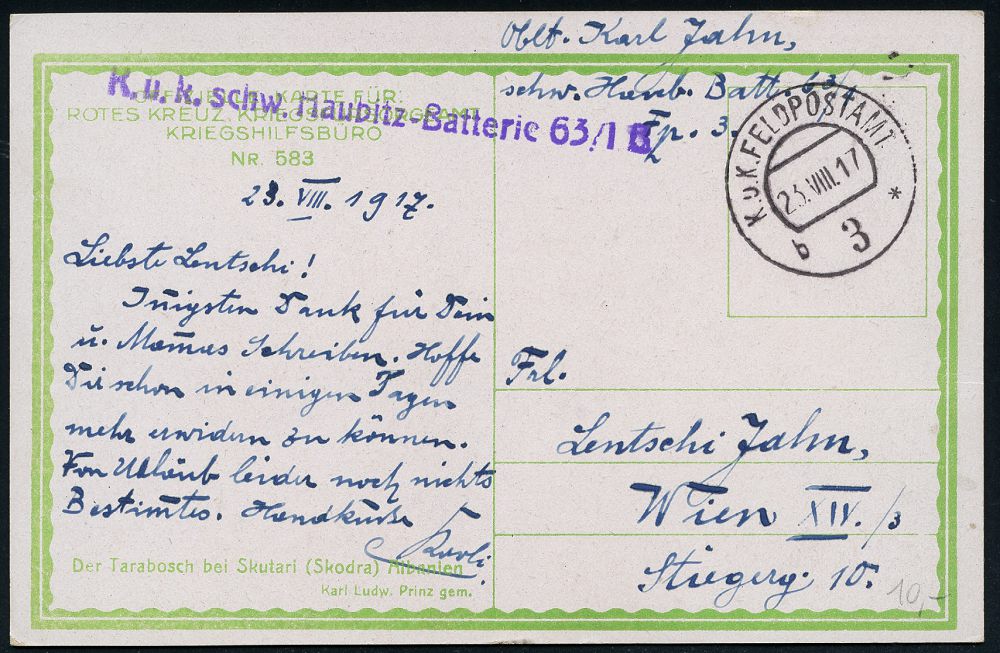 Oblt. Karl Jahn,
schw. Haub. Batt. 63/1
Fp. 3.
K.u.k. schw. Haubitz-Batterie 63/1 B
KARTE FÜR
ROTES KREUZ, KRIEGSFÜRSORGEAMT
KRIEGSHILFSBÜRO
NR. 583
K.u.K. FELDPOSTAMT
23.VIII.17
b 3 *
23. VIII. 1917.
Liebste Lentschi!
Innigsten Dank für Dein
u. Mamas Schreiben. Hoffe
Dir schon in einigen Tagen
mehr erwidern zu können.
Von Urlaub leider noch nichts
Bestimtes. Handküsse
Karli.
Der Tarabosch bei Skutari (Skodra) Albanien
Karl Ludw. Prinz gem.
Frl.
Lentschi Jahn,
Wien XIV./3
Stiegerg. 10.
10,-